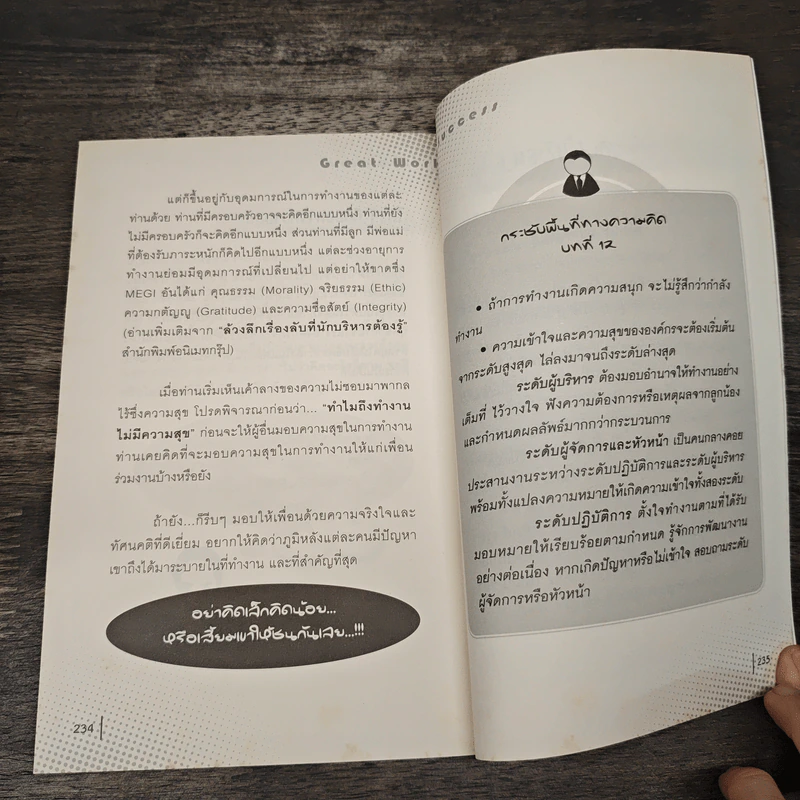 Great Work
แต่ก็ขึ้นอยู่กับอุดมการณ์ในการทำงานของแต่ละ
ท่านด้วย ท่านที่มีครอบครัวอาจจะคิดอีกแบบหนึ่ง ท่านที่ยัง
ไม่มีครอบครัวก็จะคิดอีกแบบหนึ่ง ส่วนท่านที่มีลูก มีพ่อแม่
ที่ต้องรับภาระหนักก็คิดไปอีกแบบหนึ่ง แต่ละช่วงอายุการ
ทำงานย่อมมีอุดมการณ์ที่เปลี่ยนไป แต่อย่าให้ขาดซึ่ง
MEGI อันได้แก่ คุณธรรม (Morality) จริยธรรม (Ethic)
ความกตัญญู (Gratitude) และความซื่อสัตย์ (Integrity)
(อ่านเพิ่มเติมจาก “ล้วงลึกเรื่องลับที่นักบริหารต้องรู้”
สำนักพิมพ์อนิเมทกรุ๊ป)
เมื่อท่านเริ่มเห็นเค้าลางของความไม่ชอบมาพากล
ไร้ซึ่งความสุข โปรดพิจารณาก่อนว่า... “ทำไมถึงทำงาน
ไม่มีความสุข” ก่อนจะให้ผู้อื่นมอบความสุขในการทำงาน
ท่านเคยคิดที่จะมอบความสุขในการทำงานให้แก่เพื่อน
ร่วมงานบ้างหรือยัง
ถ้ายัง...ก็รีบๆ มอบให้เพื่อนด้วยความจริงใจและ
ทัศนคติที่ดีเยี่ยม อยากให้คิดว่าภูมิหลังแต่ละคนมีปัญหา
เขาถึงได้มาระบายในที่ทำงาน และที่สำคัญที่สุด
อย่าคิดเล็กคิดน้อย...
หรือเสี้ยมเขาให้ชนกันเลย...!!!
234
uccess
กระชับพื้นที่ทางความคิด
บทที่ 12
• ถ้าการทำงานเกิดความสนุก จะไม่รู้สึกว่ากำลัง
ทำงาน
• ความเข้าใจและความสุขขององค์กรจะต้องเริ่มต้น
จากระดับสูงสุด ไล่ลงมาจนถึงระดับล่างสุด
ระดับผู้บริหาร ต้องมอบอำนาจให้ทำงานอย่าง
เต็มที่ ไว้วางใจ ฟังความต้องการหรือเหตุผลจากลูกน้อง
และกำหนดผลลัพธ์มากกว่ากระบวนการ
ระดับผู้จัดการและหัวหน้า เป็นคนกลางคอย
ประสานงานระหว่างระดับปฏิบัติการและระดับผู้บริหาร
พร้อมทั้งแปลงความหมายให้เกิดความเข้าใจทั้งสองระดับ
ระดับปฏิบัติการ ตั้งใจทำงานตามที่ได้รับ
มอบหมายให้เรียบร้อยตามกำหนด รู้จักการพัฒนางาน
อย่างต่อเนื่อง หากเกิดปัญหาหรือไม่เข้าใจ สอบถามระดับ
ผู้จัดการหรือหัวหน้า
235